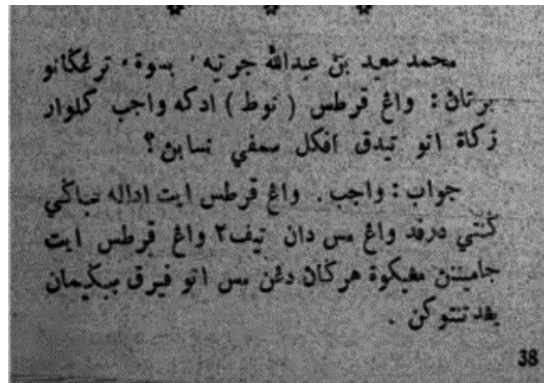 محمد سعيد بن عبدالله جرتيه ، بسوة ، ترڠڬانو
برتاڽ : واڠ قرطس ( نوط ) ادكه واجب كلوار
زكاة اتو تيدق اڤبيل سمڤي نصابڽ ؟
جواب : واجب . واڠ قرطس ايت اداله سباڬي
ڬنتي درڤد واڠ مس دان تيڤ٢ واڠ قرطس ايت
جامينن مڠيكوة هرڬاڽ دڠن مس اتو ڤيرق سباڬيمان
يڠ دتنتوكن .
38